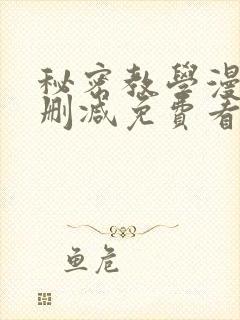 秘密教學漫
刪減免費看
鱼危